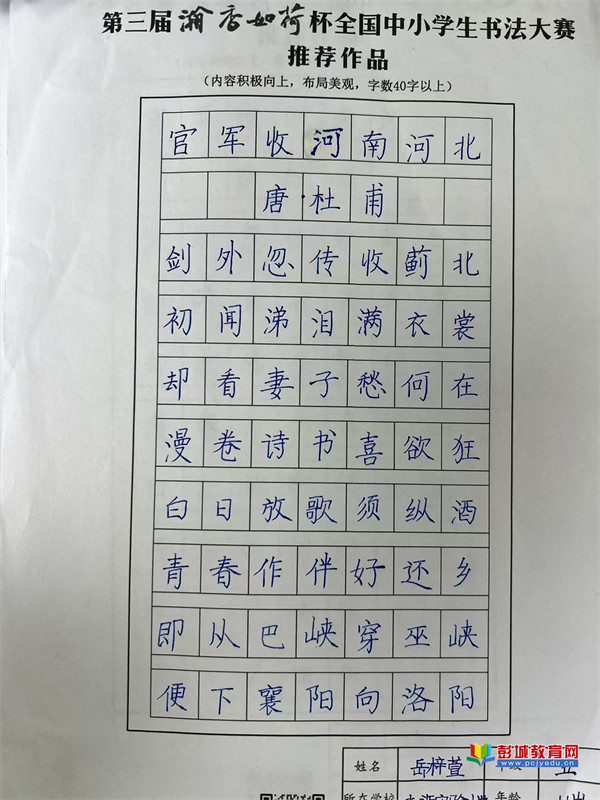 第三届瀚香如荷杯全国中小学生书法大赛
推荐作品
（内容积极向上，布局美观，字数40字以上）
官军收河南河北
唐·杜甫
剑外忽传收蓟北
初闻涕泪满衣裳
却看妻子愁何在
漫卷诗书喜欲狂
白日放歌须纵酒
青春作伴好还乡
即从巴峡穿巫峡
便下襄阳向洛阳
姓名 岳梓萱
彭城教育网
www.pcjyedu.cn
所在学校
年龄